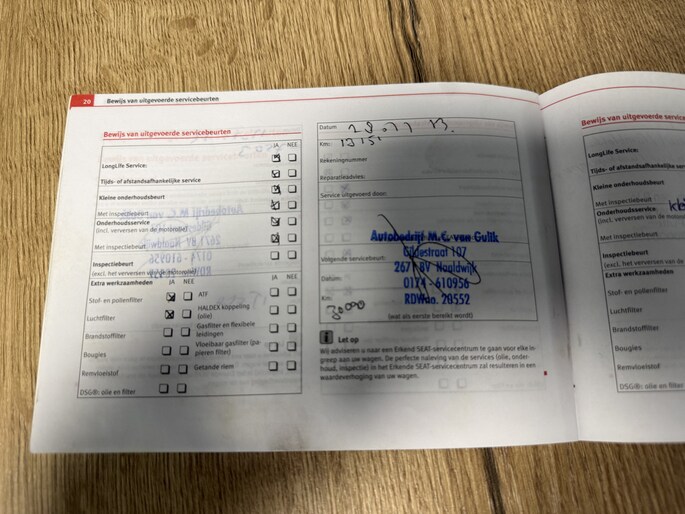 20 Bewijs van uitgevoerde servicebeurten
Bewijs van uitgevoerde servicebeurten
JA NEE
LongLife Service:
Tijds- of afstandsafhankelijke service
Kleine onderhoudsbeurt
Met inspectiebeurt
Onderhoudsservice
(incl. verversen van de motorolie)
Met inspectiebeurt
Inspectiebeurt
(excl. het verversen van de motorolie)
Extra werkzaamheden JA NEE JA NEE
Stof- en pollenfilter
ATF
Luchtfilter
HALDEX koppeling
(olie)
Brandstoffilter
Gasfilter en flexibele
leidingen
Bougies
Vloeibaar gasfilter (pa-
pieren filter)
Remvloeistof
Getande riem
DSG®: olie en filter
Datum
Km:
Rekeningnummer
Reparatieadvies:
Service uitgevoerd door:
Autobedrijf M.C. van Gulik
Gildestraat 107
2671 BV Naaldwijk
0174 - 610956
RDWno. 20552
Volgende servicebeurt:
Datum:
Km: 30000
(wat als eerste bereikt wordt)
Let op
Wij adviseren u naar een Erkend SEAT-servicecentrum te gaan voor elke in-
greep aan uw wagen. De perfecte naleving van de services (olie, onder-
houd, inspectie) in het Erkende SEAT-servicecentrum zal resulteren in een
waardeverhoging van uw wagen.
Bewijs van uitgevoerde
LongLife Service:
Tijds- of afstandsafhankelijke
Kleine onderhoudsbeurt
Met inspectiebeurt
Onderhoudsservice
(incl. verversen van de moto
Met inspectiebeurt
Inspectiebeurt
(excl. het verversen van de
Extra werkzaamheden
Stof- en pollenfilter
Luchtfilter
Brandstoffilter
Bougies
Remvloeistof
DSG®: olie en filter